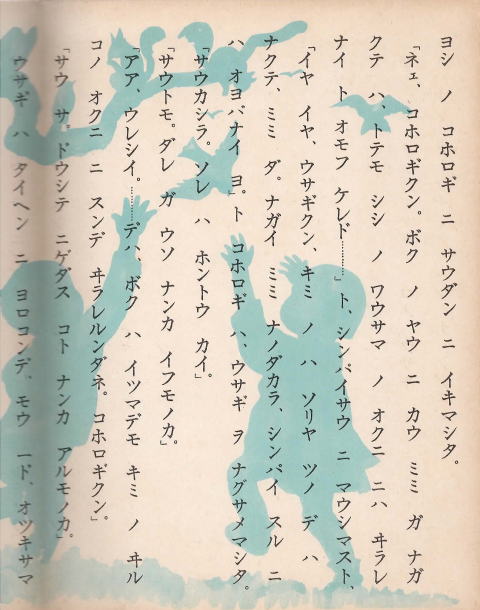 ヨシ ノ コホロギ ニ サウダン ニ イキマシタ。
「ネェ、コホロギクン。ボク ノ ヤウ ニ カウ ミミ ガ ナガ
クテ ハ、トテモ シシ ノ ワウサマ ノ オクニ ニハ ヰラレ
ナイ ト オモフ ケレド………」ト、シンパイサウ ニ マウシマスト、
「イヤ イヤ、ウサギクン、キミ ノ ハ ソリヤ ツノ デ ハ
ナクテ、ミミ ダ。ナガイ ミミ ナノダカラ、シンパイ スル ニ
ハ オヨバナイ ヨ。」ト コホロギ ハ、ウサギ ヲ ナグサメマシタ。
「サウカシラ。ソレ ハ ホントウ カイ。」
「サウトモ。ダレ ガ ウソ ナンカ イフモノカ。」
「アア、ウレシイ。………デハ、ボク ハ イツマデモ キミ ノ ヰル
コノ オクニ ニ スンデ ヰラレルンダネ。コホロギクン。」
「サウ サ。ドウシテ ニゲダス コト ナンカ アルモノカ。」
ウサギ ハ タイヘン ニ ヨロコンデ、モウ 一ド、オツキサマ